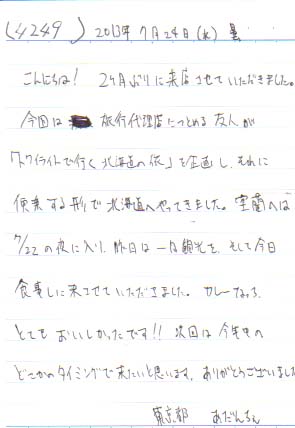 (4249) 2013年 7月24日(水) 曇
こんにちは! 2ヶ月ぶりに来店させていただきました。
今回は 旅行代理店につとめる友人が
「トワイライトで行く北海道の旅」を企画し、それに
便乗する形で北海道へやってきました。室蘭へは
7/22の夜に入り、昨日は一日観光を、そして今日
食事しに来させていただきました。カレーなっ
とてもおいしかったです!! 次回は今年中の
どこかのタイミングで来たいと思います。ありがとうございました
東京都 あだんちぇ